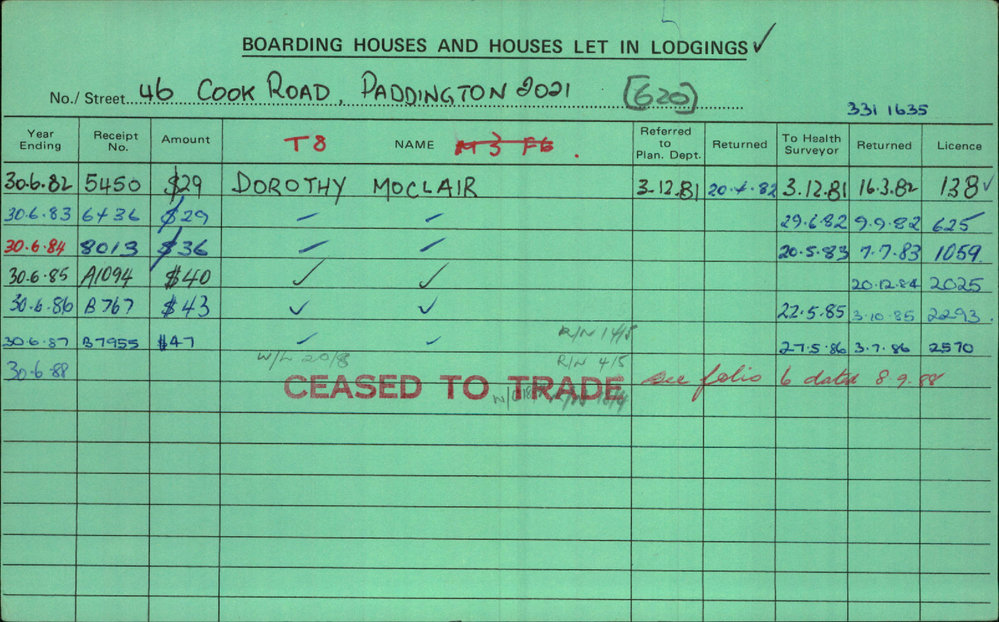 BOARDING HOUSES AND HOUSES LET IN LODGINGS ✓
No./ Street 46 COOK ROAD, PADDINGTON 2021 (620)
331 1635
Year Ending Receipt No. Amount T8 NAME M3 F6 . Referred to Plan. Dept. Returned To Health Surveyor Returned Licence
30.6.82 5450 $29 DOROTHY MOCLAIR 3.12.81 20.4.82 3.12.81 16.3.82 138 ✓
30.6.83 6436 $29 – – 29.6.82 9.9.82 625
30.6.84 8013 $36 – – 20.5.83 7.7.83 1059
30.6.85 A1094 $40 ✓ ✓ 20.12.84 2025
30.6.86 B767 $43 ✓ ✓ 22.5.85 3.10.85 2293.
R/N 14/8
30.6.87 B7955 $47 – – 27.5.86 3.7.86 2570
W/L 20/8 R/N 4/5
30.6.88 CEASED TO TRADE see folio 6 dated 8.9.88